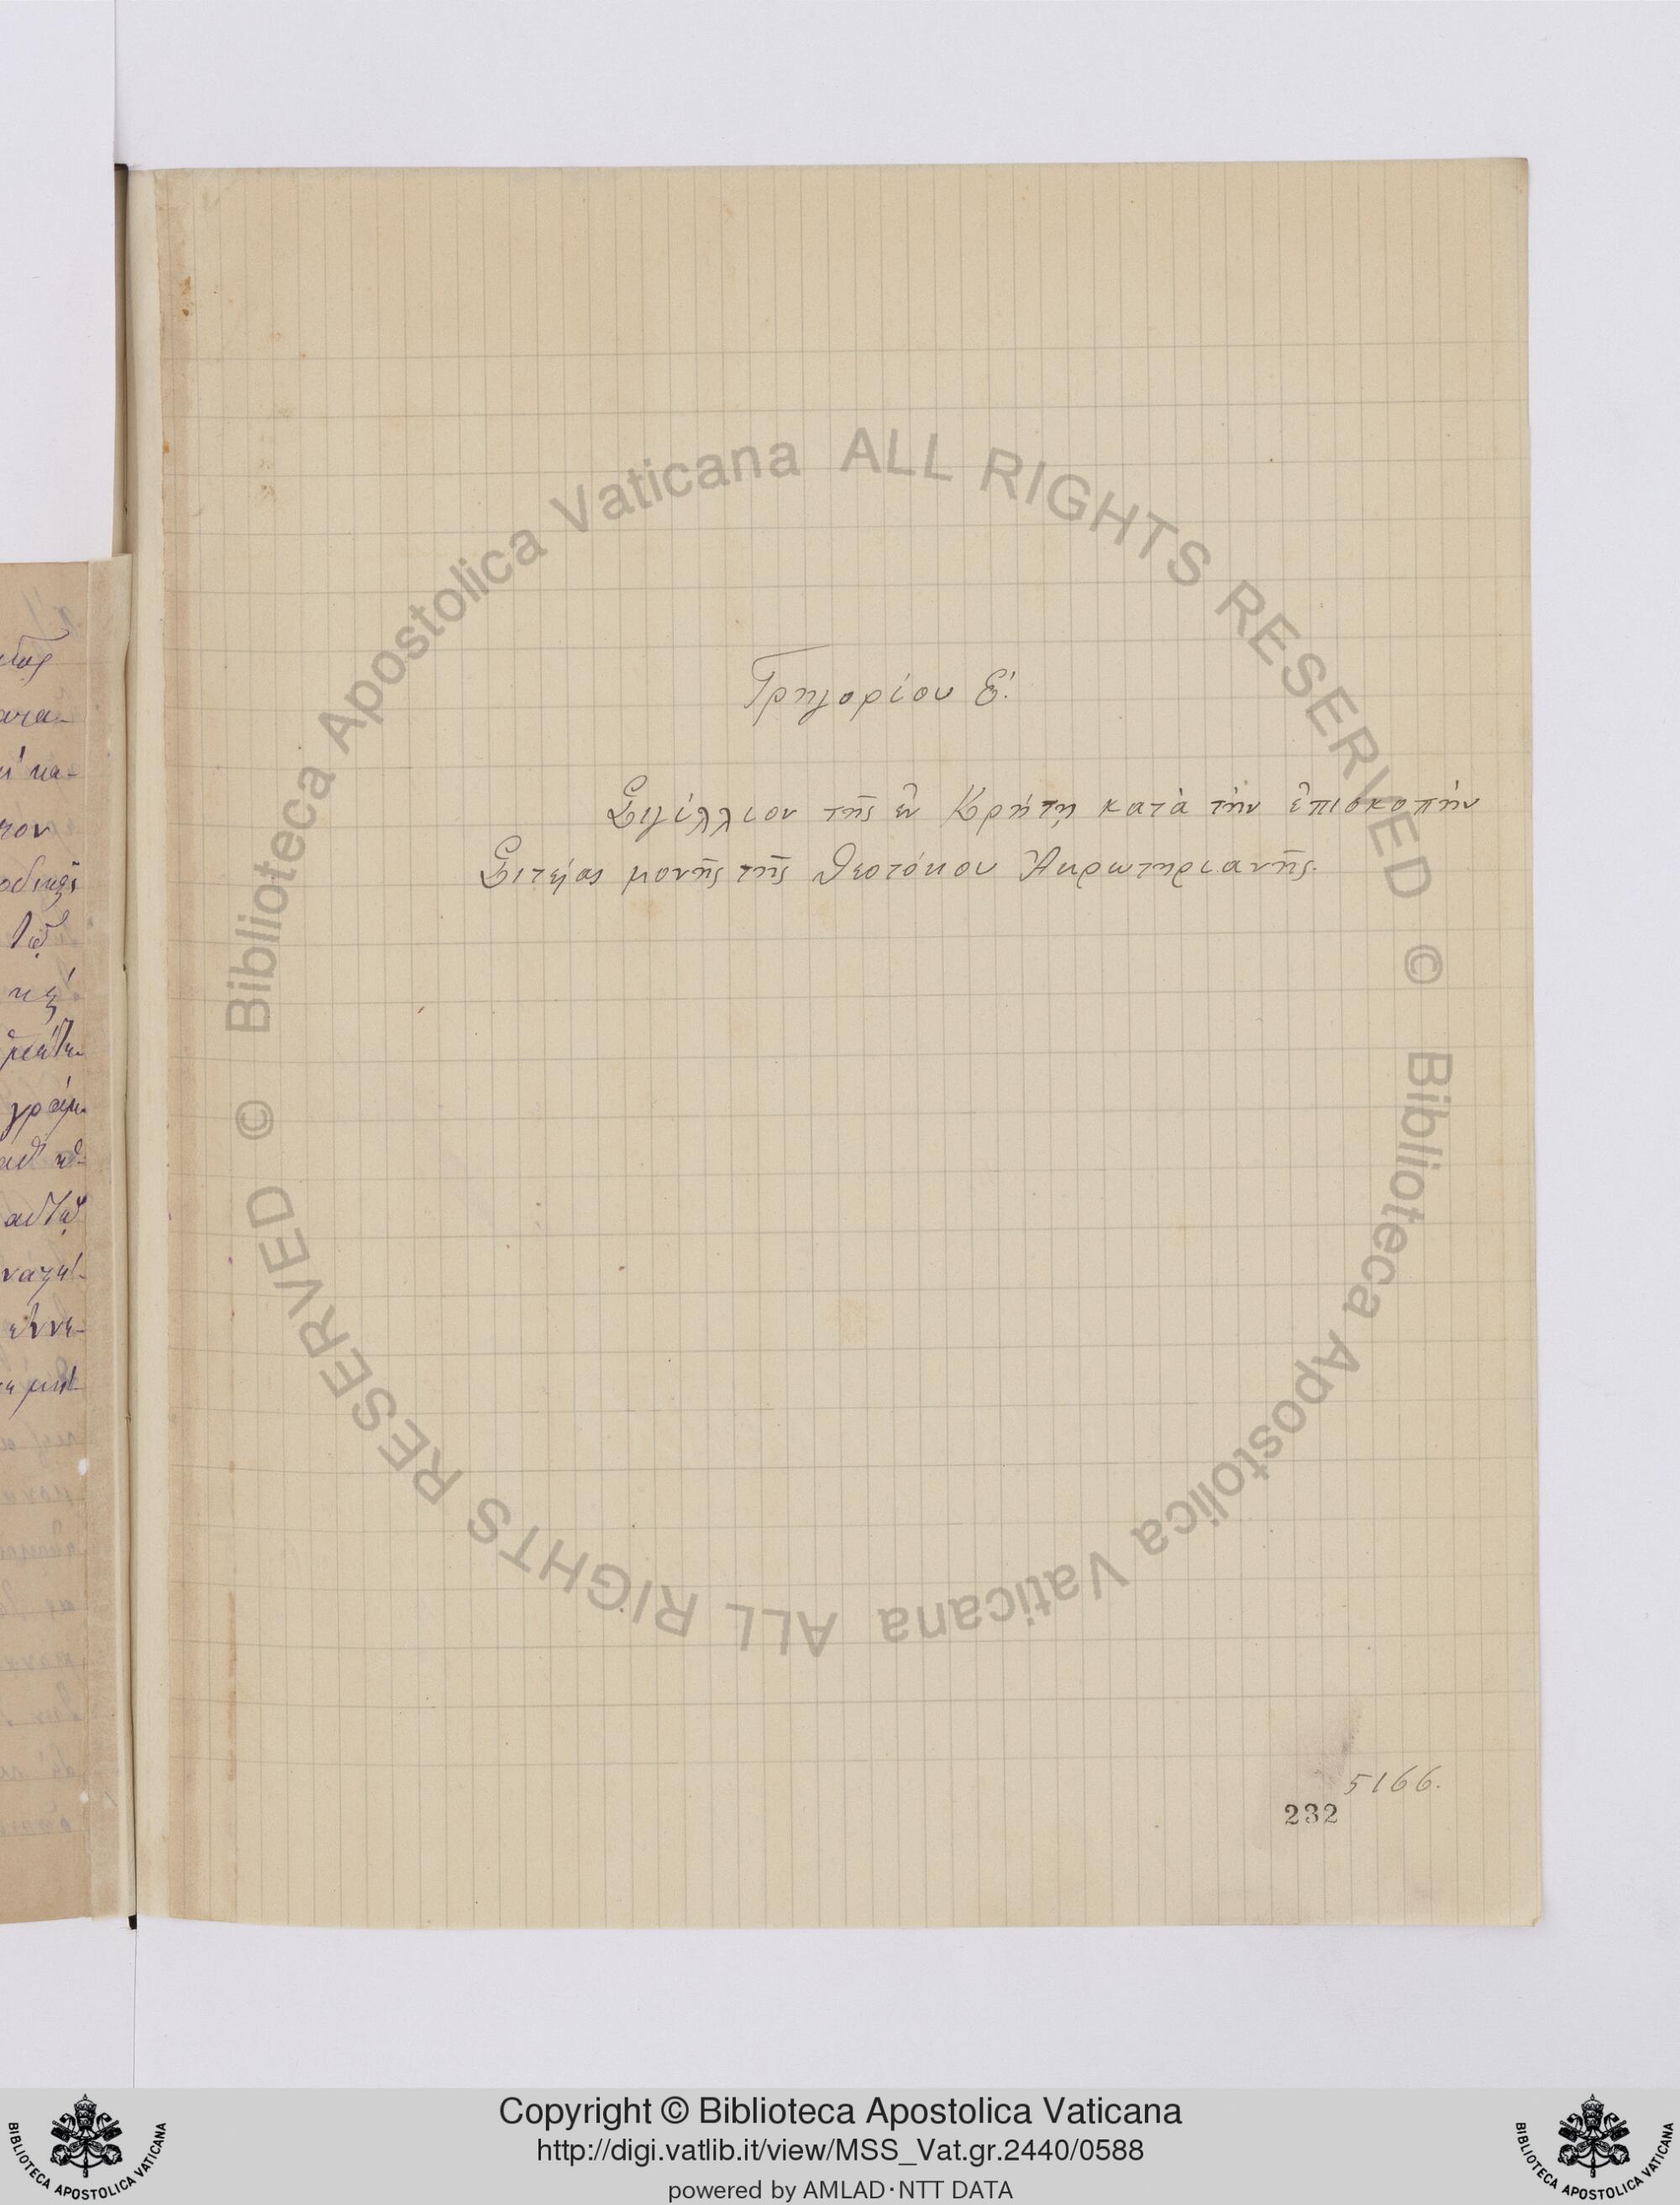 Γρηγορίου Ε΄.
Σιγίλλιον τῆς ἐν Κρήτῃ κατὰ τὴν ἐπισκοπὴν
Σιτείας μονῆς τῆς Θεοτόκου Ἀκρωτηριανῆς.
5166.
232
© Biblioteca Apostolica Vaticana ALL RIGHTS RESERVED
© Biblioteca Apostolica Vaticana ALL RIGHTS RESERVED
Copyright © Biblioteca Apostolica Vaticana
http://digi.vatlib.it/view/MSS_Vat.gr.2440/0588
powered by AMLAD·NTT DATA
BIBLIOTECA APOSTOLICA VATICANA
BIBLIOTECA APOSTOLICA VATICANA